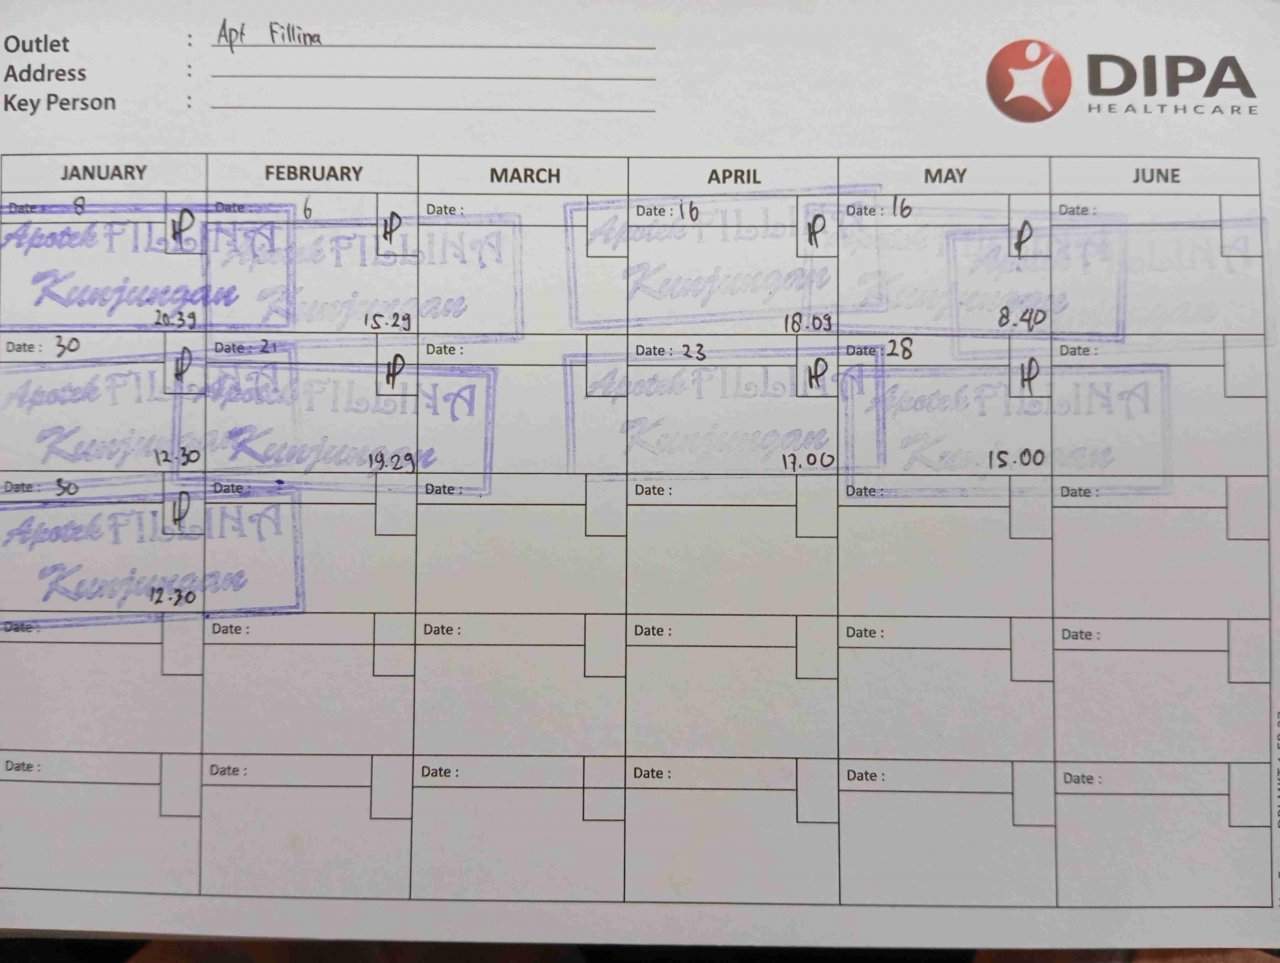 Outlet : Apt Fillina
Address :
Key Person :
DIPA
HEALTHCARE
JANUARY FEBRUARY MARCH APRIL MAY JUNE
Date : 8 Date : 6 Date : Date : 16 Date : 16 Date :
Apotek Apotek Apotek
Kunjungan Kunjungan Kunjungan
20.39 15.29 18.09 8.40
Date : 30 Date : 21 Date : Date : 23 Date : 28 Date :
Apotek Apotek Apotek Apotek
Kunjungan Kunjungan Kunjungan Kunjungan
12.30 19.29 17.00 15.00
Date : 30 Date : Date : Date : Date : Date :
Apotek
Kunjungan
12.30
Date : Date : Date : Date : Date : Date :
Date : Date : Date : Date : Date : Date :